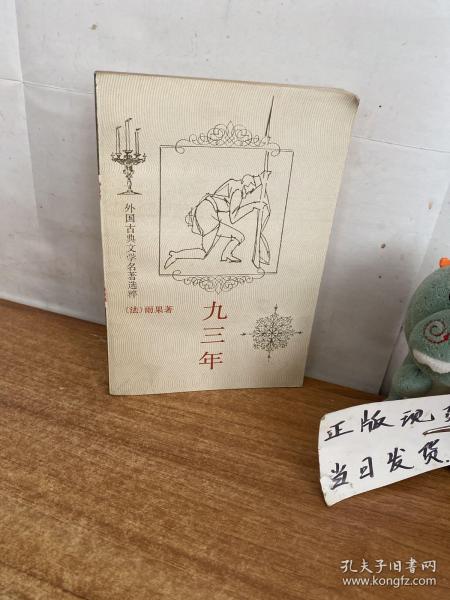 外国古典文学名著选粹
〔法〕雨果著
九三年
正版现
当日发货.
孔夫子旧书网
www.kongfz.com